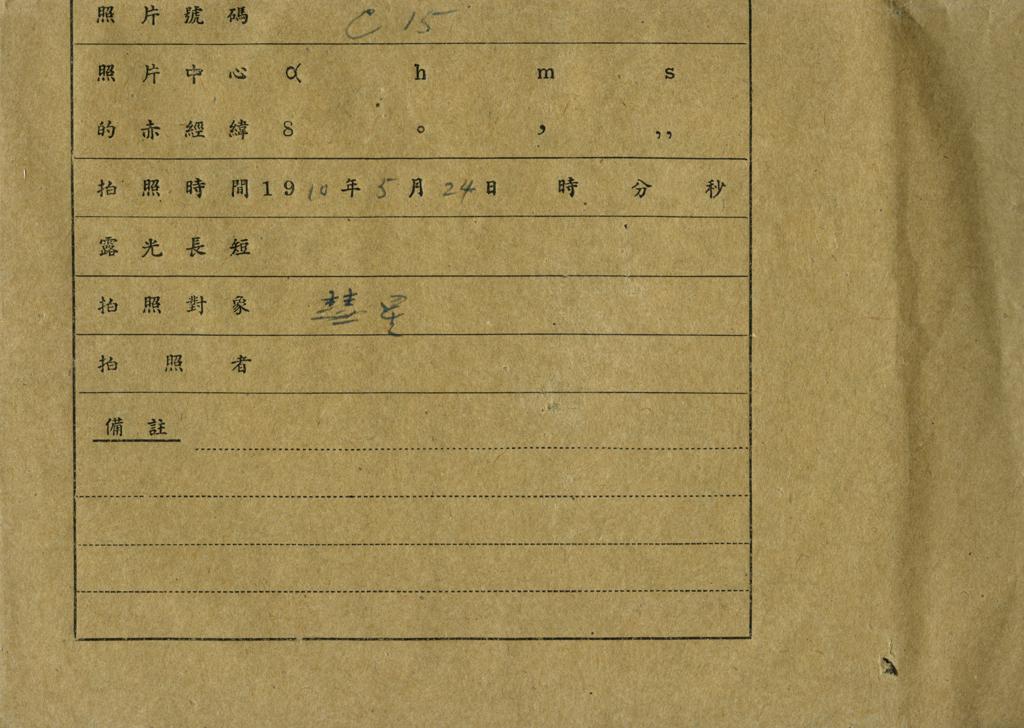 照片號碼 C 15
照片中心 α h m s
的赤經緯 δ ° ′ ″
拍照時間1910年5月24日 時 分 秒
露光長短
拍照對象 彗星
拍照者
備註